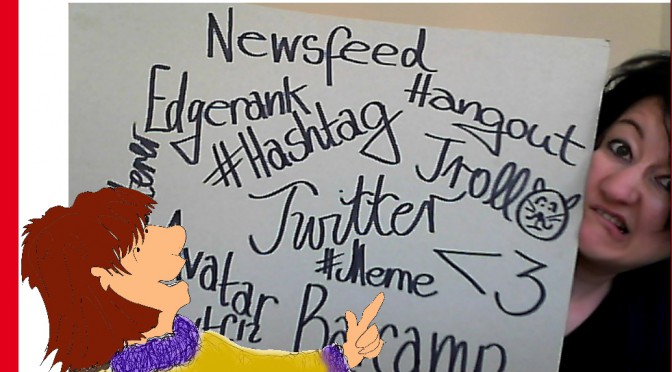 Newsfeed
Edgerank
#Hangout
#Hashtag
Troll
Twitter
#Meme
<3
Barcamp